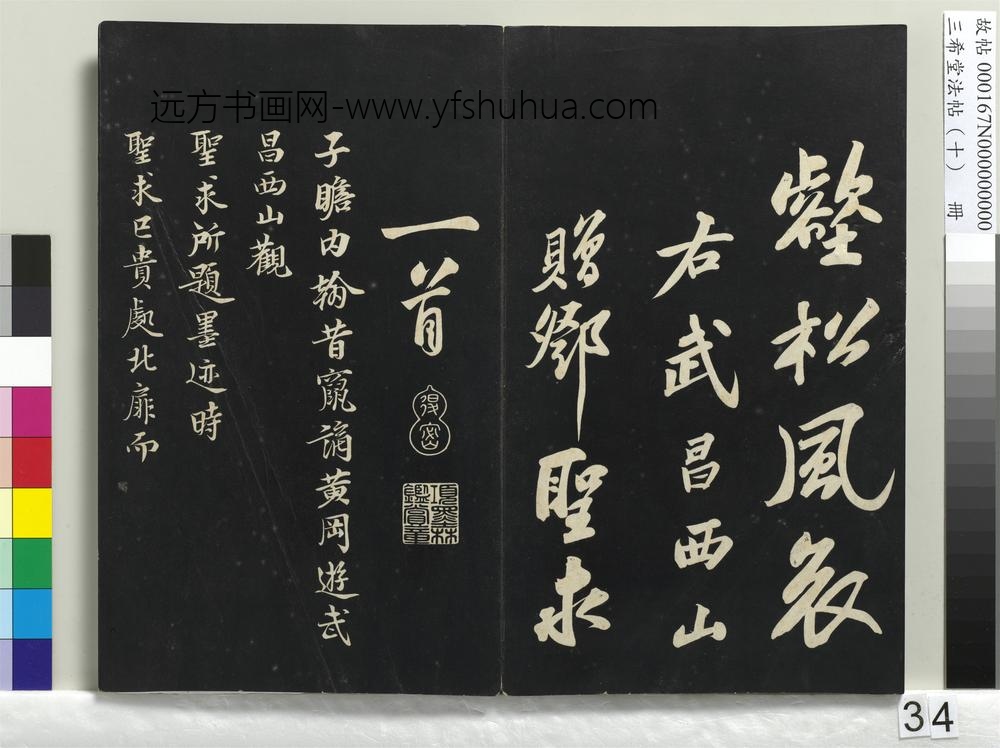 壑松風哀
右武昌西山
贈鄧聖求
一首
得密
項墨林鑑賞章
子瞻内翰昔竄謫黄岡遊武
昌西山觀
聖求所題墨迹時
聖求已貴處北扉而
远方书画网-www.yfshuhua.com
故帖 000167N000000000
三希堂法帖（十） 冊
34